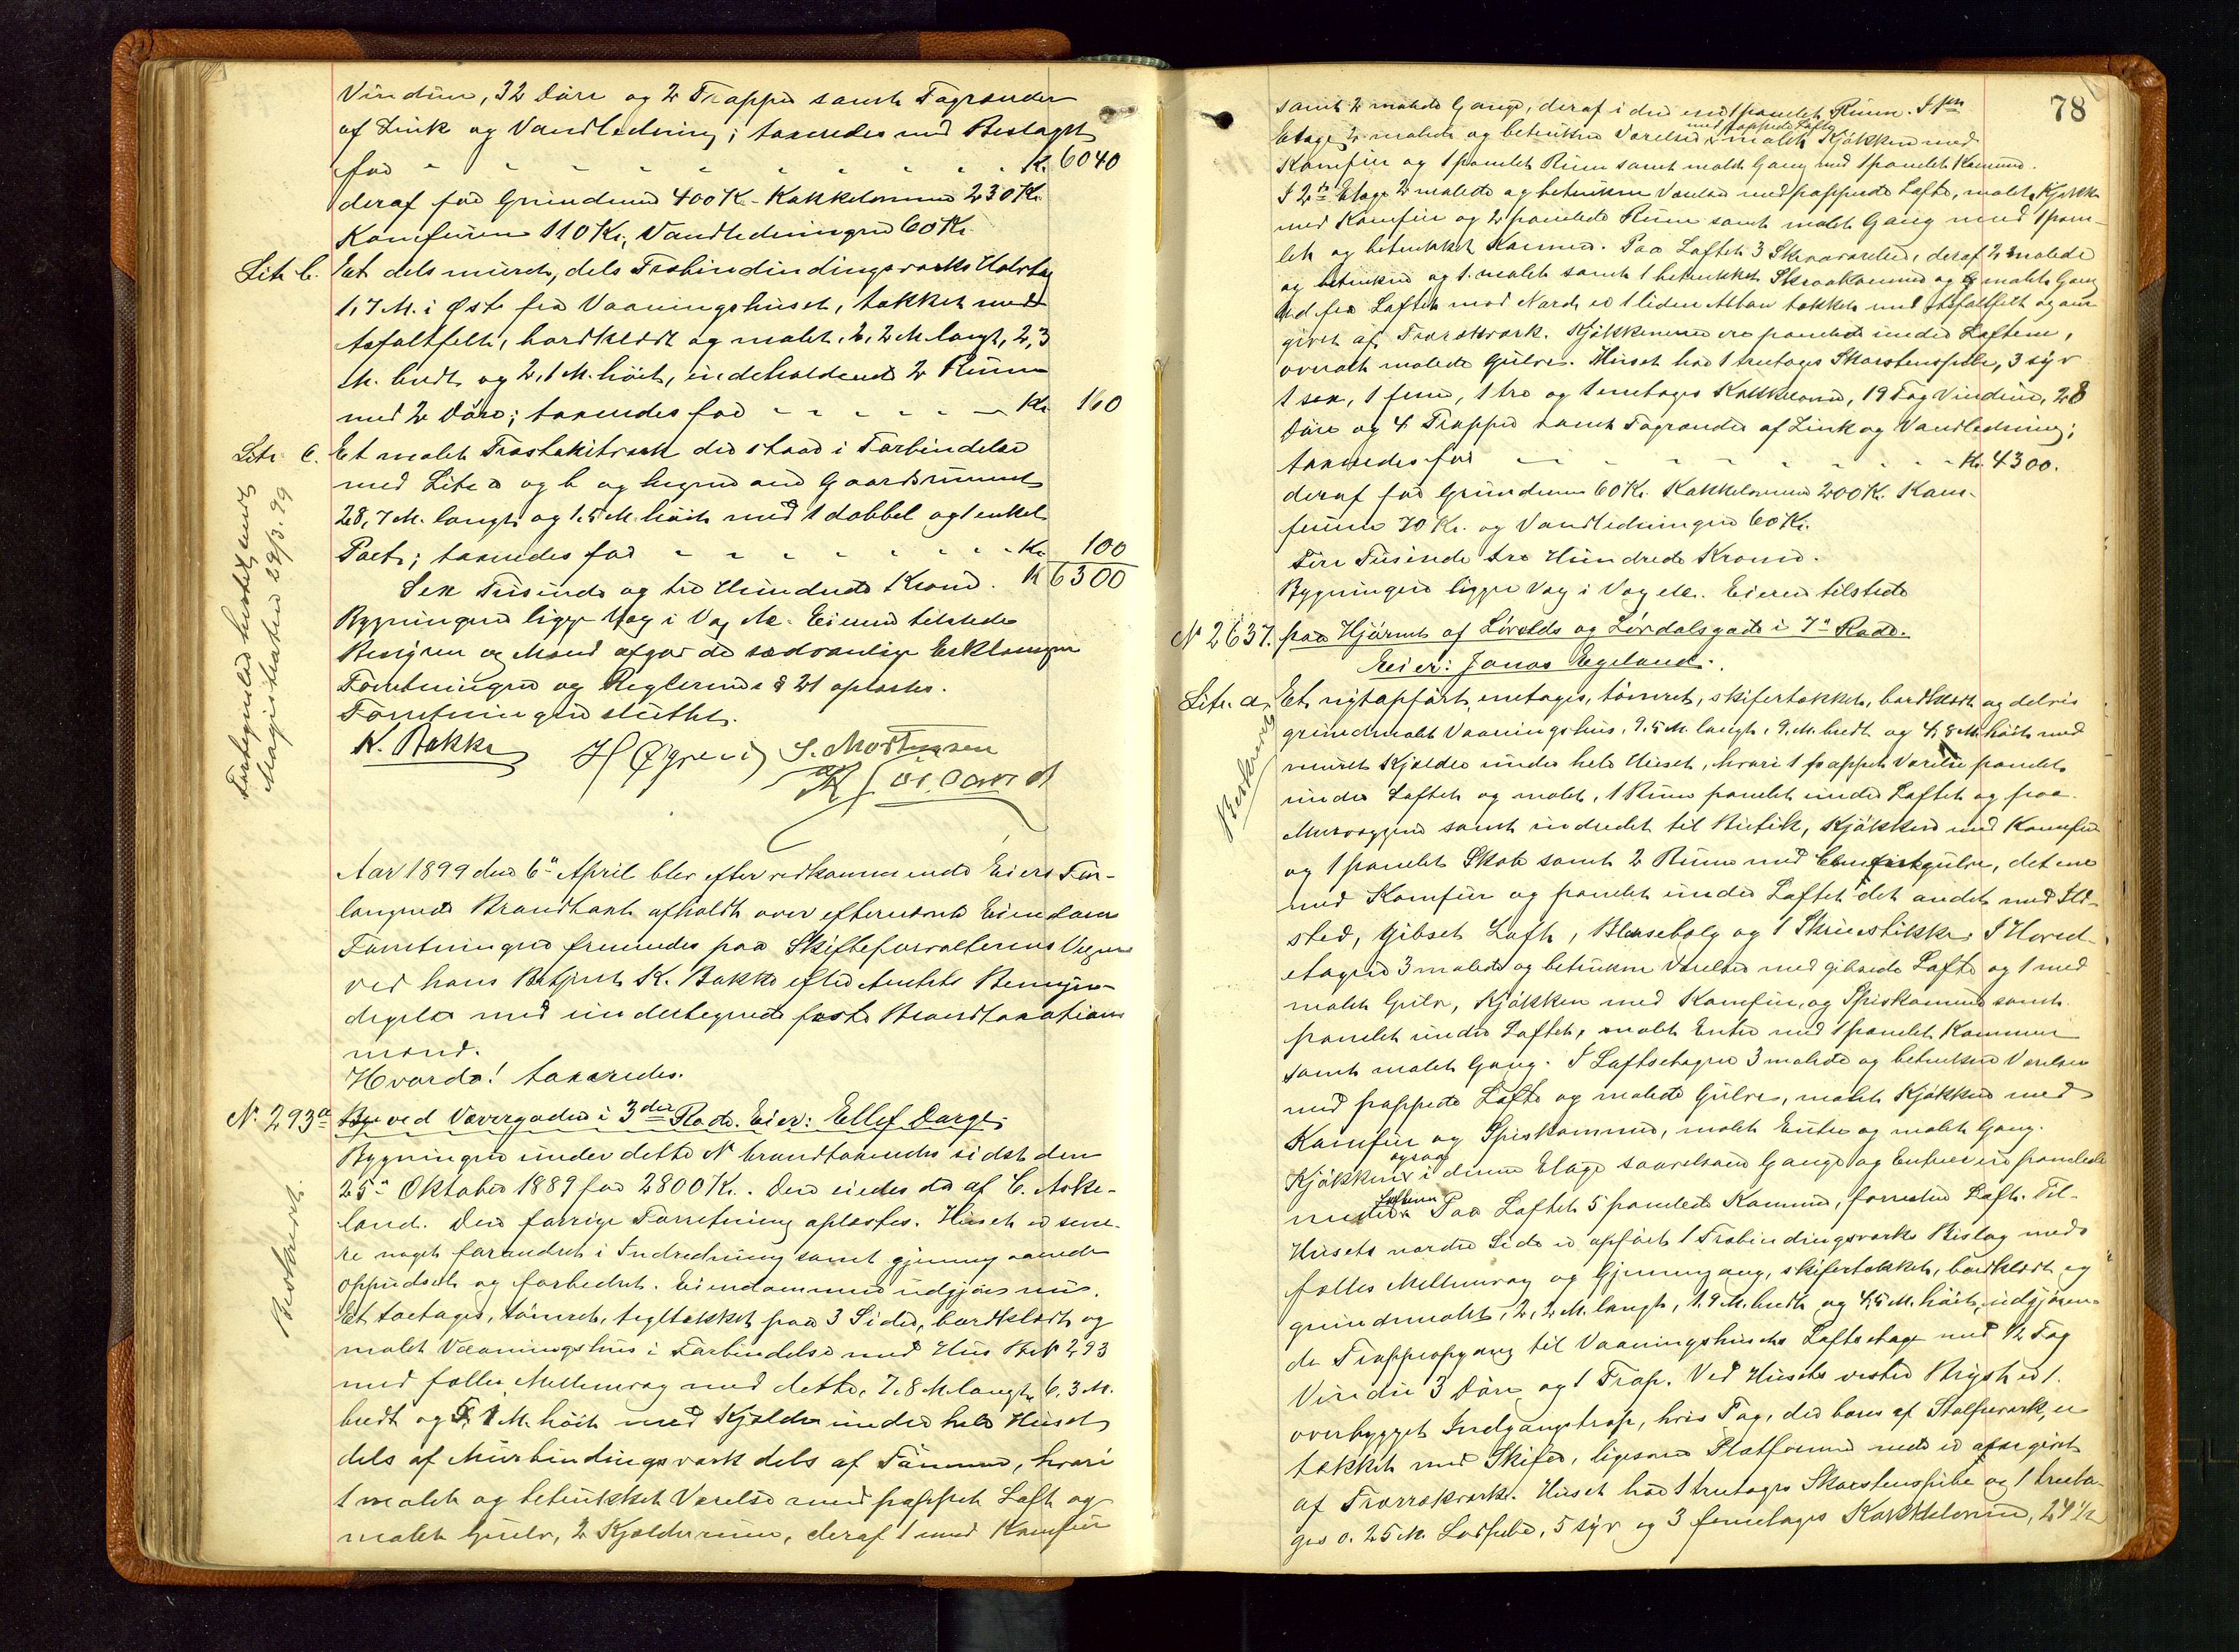 Vinduer, 32 Döre og 2 Trapper samt Tagrender
af Zink og Vandledning; taxeredes med Beslaget
for - - - - - - - - - Kr. 6040
deraf for Grunden 400 Kr. Kakkelovnene 230 Kr.
Komfurene 110 Kr. Vandledningen 60 Kr.
Litr b. Et dels muret, dels Træbindingsværks Udhus
1,7 M. i Øst fra Vaaningshuset, tækket med
Asfaltfelt, bordklædt og malet, 2,2 M. langt, 2,3
M. bredt og 2,1 M. höit, indeholdende 2 Rum
med 2 Döre; taxeredes for - - - - - Kr. 160
Litr. c. Et malet Træstakitværk der staar i Forbindelse
med Litr a og b og hegner om Gaardsrummet
28,7 M. langt og 1,5 M. höit med 1 dobbel og 1 enkel
Port; taxeredes for - - - - - - - Kr. 100
Sex Tusinde og tre Hundrede Kroner. Kr 6300
Bygningen ligger Væg i Væg &c. Eieren tilstede
Bestyrer og Mænd afgav de sædvanlige Erklæringer
Forretningen og Reglernes § 21 oplæstes.
Forretningen sluttet.
K. Bakke H. Øgreid S. Mortensen
Forbegrundet bestet sendt
Magistraten 29/3. 99
Aar 1899 den 6te April blev efter vedkommende Eiers For-
langende Brandtaxt afholdt over efternævnte Eiendom
Forretningen fremmedes paa Skifteforvalterens Vegne
ved hans Betjent K. Bakke efter Amtets Bemyn-
digelse med undertegnede faste Brandtaxations
mænd.
Hvorda! taxeredes.
No. 293a Bye ved Vævergaden i 3die Rode. Eier: Ellef Darge.
Bygningen under dette No brandtaxeredes sidst den
25de Oktober 1889 for 2800 Kr. Den eiedes da af C. Aske-
land. Den forrige Forretning oplæstes. Huset er sene-
re noget forandret i Indredning samt gjennemgaaende
oppudset og forbedret. Eiendommen udgjör nu.
Et toetages, tömret, tegltækket paa 3 Sider, bordklædt og
malet Vaaningshus i Forbindelse med Hus No 293
med fælles Mellemvæg med dette, 7,8 M. langt, 6,3 M.
bredt og 5,1 M. höit med Kjælder under hele Huset
dels af Murbindingsværk dels af Tömmer, hvori
1 malet og betrukket Værelse med pappet Loft og
malet Gulv, 2 Kjælderrum, deraf 1 med Komfur
Beskrevet.
78
samt 2 malede Gange, deraf i den ene 1 panelet Rum. I 1ste
Etage 2 malede og betrukne Værelser med pappede Lofte, malet Kjökken med
Komfur og 1 panelet Rum samt malet Gang med 1 panelet Kammer.
I 2den Etage 2 malede og betrukne Værelser med pappede Lofte, malet Kjökken
med Komfur og 2 panelede Rum samt malet Gang med 1 pane-
let og betrukket Kammer. Paa Loftet 3 Skraaværelser, deraf 2 malede
og betrukne og 1 malet samt 1 betrukket Skraakammer og malet Gang
Ud fra Loftet mod Nord er 1 liden Altan tækket med Asfaltfelt og om
givet af Træværk. Kjökkenerne ere panelede under Loftene,
overalt malede Gulve. Huset har 1 treetages Skorstenspibe, 3 syv
1 sex, 1 fem, 1 tre og 1 enetages Kakkelovne, 19 Fag Vinduer, 28
Döre og 4 Trapper samt Tagrender af Zink og Vandledning;
taxeredes for - - - - - - - - Kr. 4300.
deraf for Grunden 60 Kr. Kakkelovnene 200 Kr. Kom-
furene 70 Kr. og Vandledningen 60 Kr.
Fire Tusinde tre Hundrede Kroner.
Bygningen ligger Væg i Væg &c. Eieren tilstede
No 2637. paa Hjörnet af Lövolds og Lövdalsgade i 7de Rode.
Eier: Jonas Egeland.
Litr. a. Et nyt opfört, enetages, tömret, skifertækket, bordklædt og delvis
grundmalet Vaaningshus, 9,5 M. langt, 9 M. bredt og 4,8 M. höit med
muret Kjælder under hele Huset, hvori 1 pappet Værelse panelet
under Loftet og malet, 1 Rum panelet under Loftet og paa
Murvæggene samt indredet til Butik, Kjökken med Komfur
og 1 panelet Skab samt 2 Rum med Cementgulve, det ene
med Komfur og panelet under Loftet det andet med Ild-
sted, gibset Loft, Blæsebælg og 1 Skruestikke. I Hoved-
etagen 3 malede og betrukne Værelser med gibsede Lofte og 1 med
malet Gulv, Kjökken med Komfur og Spiskammer samt
panelet under Loftet, malet Entre med 1 panelet Kammer
samt malet Gang. I Loftsetagen 3 malede og betrukne Værelser
med pappede Lofte og malede Gulve, malet Kjökken med
Komfur og Spiskammer, malet Entre og malet Gang.
Kjökkener i denne Etage saavelsom Gange og Entreer ere panelede
under Loftene. Paa Loftet 5 panelede Kammer, forresten Loft. Til
Husets nordre Side er opfört 1 Træbindingsværks Bislag med
fælles Mellemvæg og Gjennemgang, skifertækket, bordklædt og
grundmalet, 2,2 M. langt, 1,9 M. bredt og 4,5 M. höit, udgjören-
de Trappeopgang til Vaaningshusets Loftsetage med 1/2 Fag
Vindu 3 Döre og 1 Trap. Ved Husets vestre Bryst er 1
overbygget Indgangstrap, hvis Tag, der bæres af Stolpeværk, er
tækket med Skifer, ligesom Platformen med er omgivet
af Træværk. Huset har 1 treetages Skorstenspibe og 1 treeta-
ges 0.25 M. Lodpibe, 5 syv og 3 femetages Kakkelovne, 24 1/2
Beskrevet